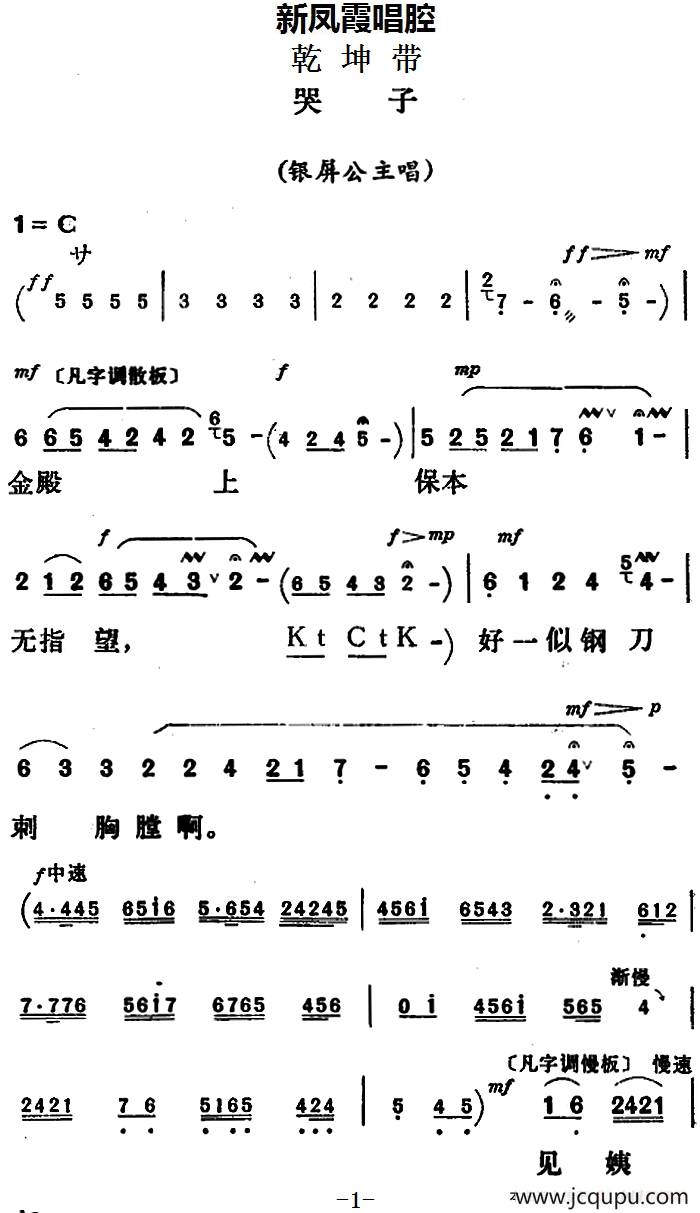 新凤霞唱腔
乾坤带
哭 子
(银屏公主唱)
1=C
サ
ff ff > mf
( 5 5 5 5 | 3 3 3 3 | 2 2 2 2 | 2 7 - 6 - 5 - ) |
mf 〔凡字调散板〕 f mp
6 6 5 4 2 4 2 6 5 - ( 4 2 4 5 - ) | 5 2 5 2 1 7 6 ∨ 1 -
金殿 上 保本
f f > mp mf
2 1 2 6 5 4 3 ∨ 2 - ( 6 5 4 3 2 - ) | 6 1 2 4 5 4 - |
无指 望, K t C t K - ) 好一似钢刀
mf > p
6 3 3 2 2 4 2 1 7 - 6 5 4 2 4 ∨ 5 -
刺 胸膛啊。
f 中速
( 4·445 6516 5·654 24245 | 4561 6543 2·321 612 |
7·776 5617 6765 456 | 0 1 4561 565 4 |
渐慢
〔凡字调慢板〕 慢速
2421 7 6 5165 424 | 5 4 5 ) mf 1 6 2421 |
见 姨
-1-
www.jcqupu.com